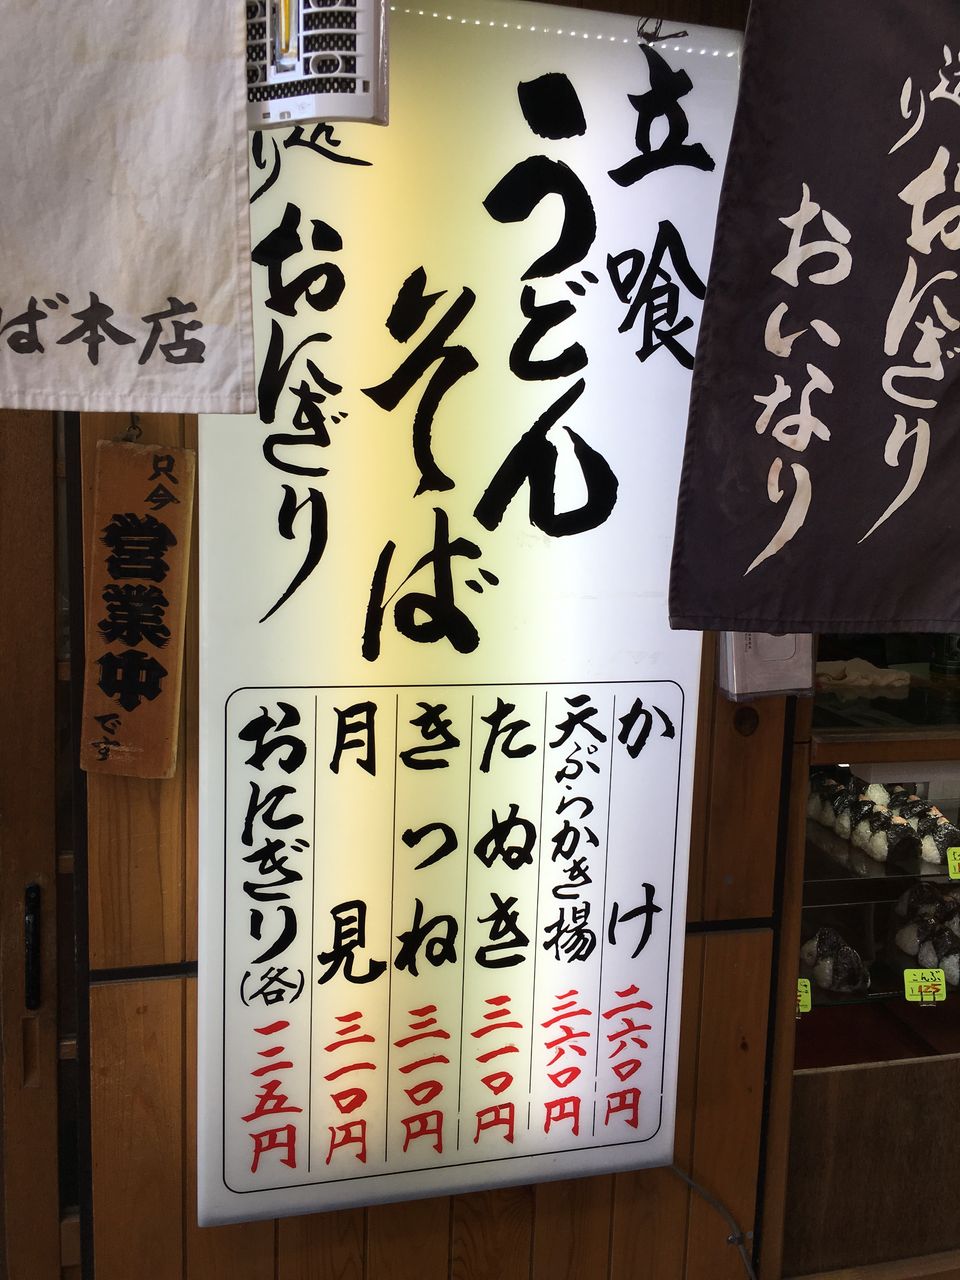 立喰
うどん
そば
おにぎり
かけ 二六〇円
天ぷらかき揚 三六〇円
たぬき 三一〇円
きつね 三一〇円
月見 三一〇円
おにぎり(各) 一二五円
おにぎり
おいなり
ば本店
只今
営業中
です
こんぶ
125